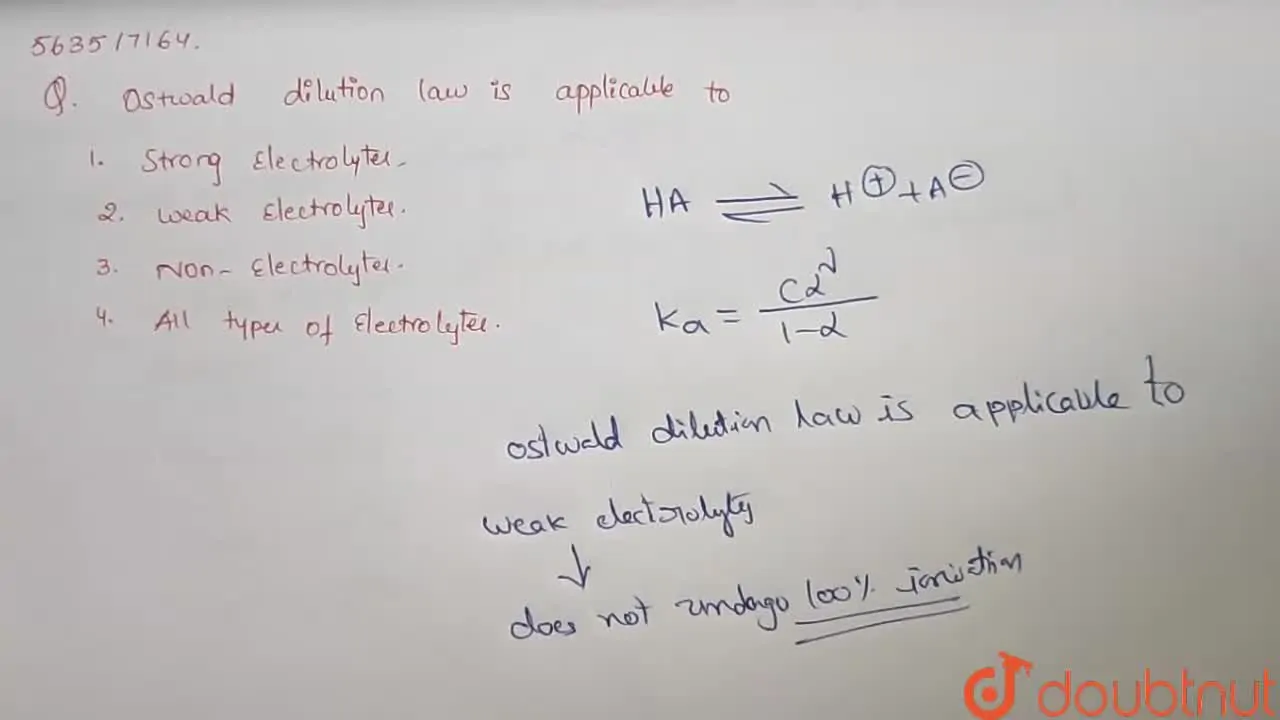 563517164.
Q. Ostwald dilution law is applicable to
1. Strong Electrolytes.
2. Weak Electrolytes.
3. Non-Electrolytes.
4. All types of Electrolytes.
HA ⇌ H⊕ + A⊖
Ka = Cα² / 1-α
ostwald dilution law is applicable to
weak electrolytes
↓
does not undergo 100% ionisation
doubtnut